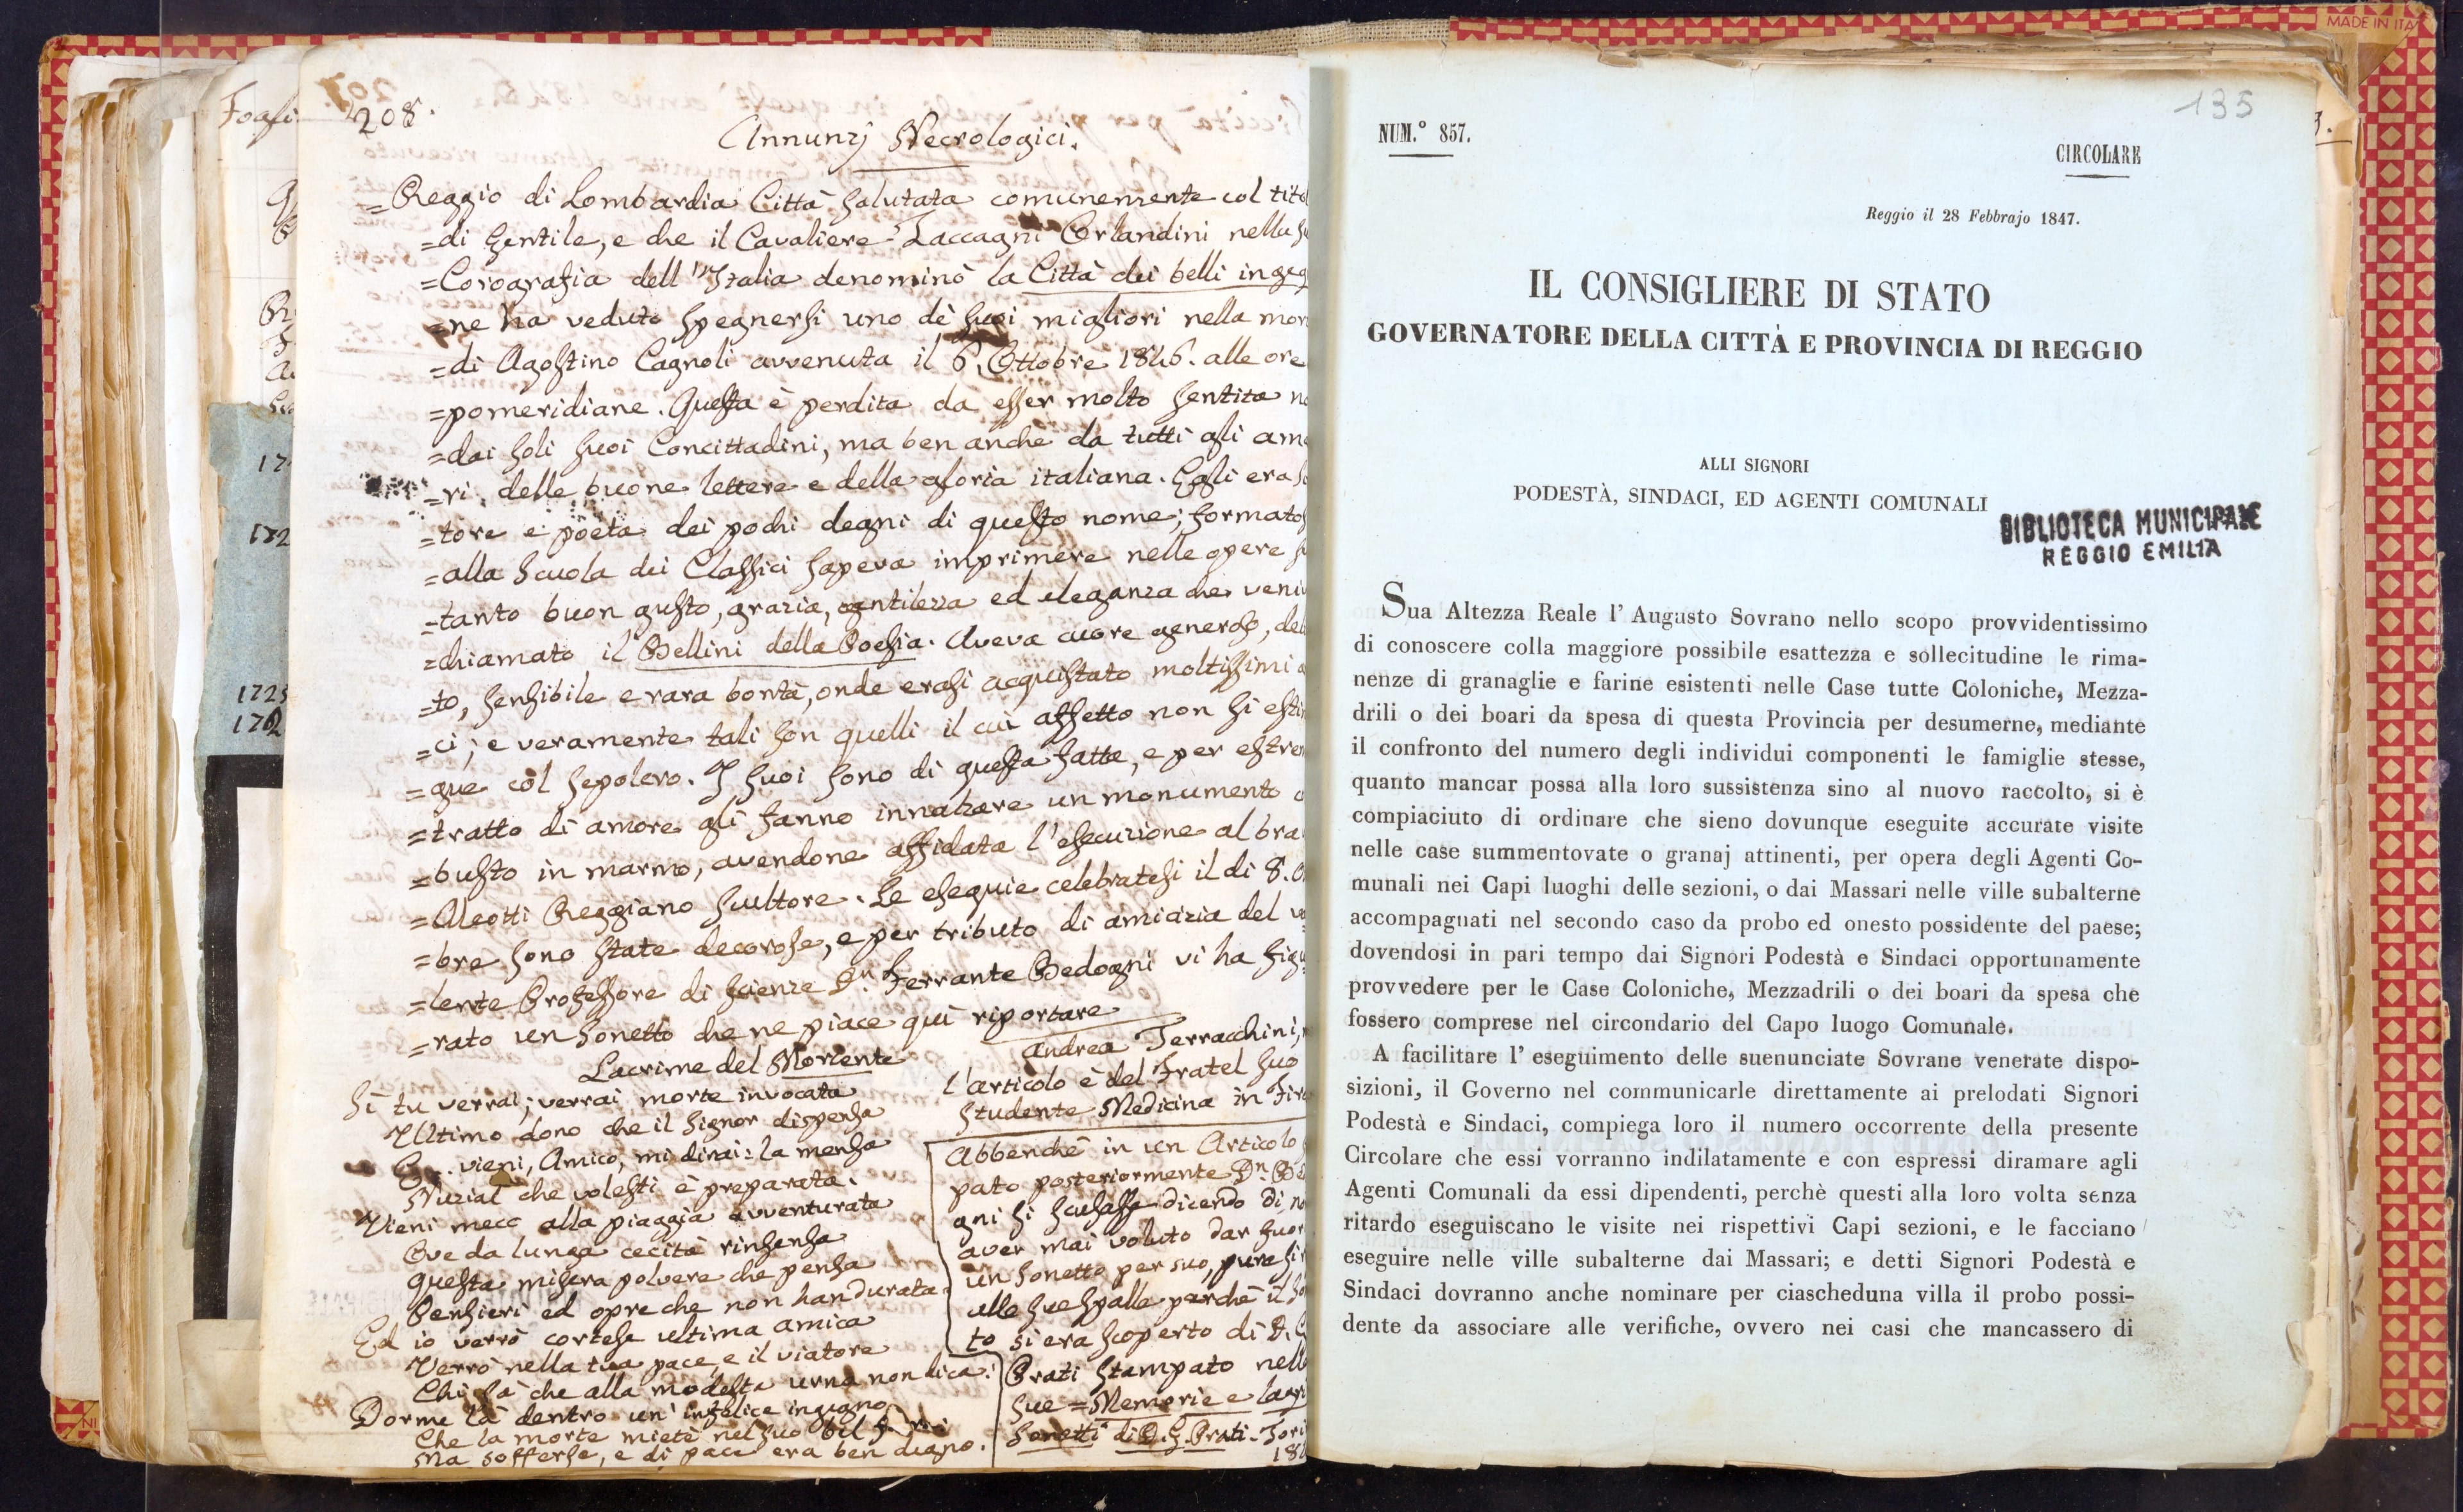 MADE IN ITA
Foafi
172
1725
1762
208.
Annunzj Necrologici.
=Reggio di Lombardia Città salutata comunemente col tito
=di Gentile, e che il Cavaliere Zaccagni Orlandini nella su
=Corografia dell'Italia denominò la Città dei belli ingeg
=ne ha veduto spegnersi uno de' suoi migliori nella mor
=di Agostino Cagnoli avvenuta il 6. Ottobre 1846. alle ore
=pomeridiane. Questa è perdita da esser molto sentita no
=dai soli suoi Concittadini, ma ben anche da tutti gli ama
=ri, delle buone lettere e della gloria italiana. Egli era sc
=tore e poeta dei pochi degni di questo nome; formatos
=alla scuola dei Classici sapeva imprimere nelle opere su
=tanto buon gusto, grazia, gentilezza ed eleganza che veniv
=chiamato il Bellini della Poesia. Aveva cuore generoso, deli
=to, sensibile e rara bontà, onde erasi acquistato moltissimi a
=ci; e veramente tali son quelli il cui affetto non si estin
=gue col sepolcro. I suoi sono di questa fatta, e per estrem
=tratto di amore gli fanno innalzare un monumento c
=busto in marmo, avendone affidata l'esecuzione al bra
=Aleotti Reggiano scultore. Le esequie celebratesi il di 8. Ot
=bre sono state decorose, e per tributo di amicizia del va
=lente Professore di scienze Dn. Ferrante Bedogni vi ha figu
=rato un sonetto che ne piace quì riportare
Andrea Terracchini,
Lacrime del Morente
l'articolo è del Fratel suo
Studente Medicina in Fire
Sì tu verrai; verrai morte invocata
Ultimo dono che il Signor dispensa
E.. vieni, Amico, mi dirai: la mensa
Nuzial che volesti è preparata.
Vieni meco alla piaggia avventurata
Ove da lunga cecità rinsensa
Questa misera polvere che pensa
Pensieri ed opre che non han durata.
Ed io verrò cortese ultima amica
Verrò nella tua pace, e il viatore
Chi sà che alla modesta urna non dica:
Dorme là dentro un' infelice ingegno
Che la morte mietè nel suo bel fiore
Ma sofferse, e di pace era ben degno.
Abbenchè in un Articolo s
pato posteriormente Dn. Be
gni si scusasse dicendo di no
aver mai voluto dar fuor
un sonetto per suo, pure si r
alle sue spalle perchè il so
to si era scoperto di D. G
Prati stampato nell
sue = Memorie e lagri
Sonetti di D. G. Prati. Tori
184
135
NUM.° 857.
CIRCOLARE
Reggio il 28 Febbrajo 1847.
IL CONSIGLIERE DI STATO
GOVERNATORE DELLA CITTÀ E PROVINCIA DI REGGIO
ALLI SIGNORI
PODESTÀ, SINDACI, ED AGENTI COMUNALI
BIBLIOTECA MUNICIPALE
REGGIO EMILIA
Sua Altezza Reale l' Augusto Sovrano nello scopo provvidentissimo
di conoscere colla maggiore possibile esattezza e sollecitudine le rima-
nenze di granaglie e farine esistenti nelle Case tutte Coloniche, Mezza-
drili o dei boari da spesa di questa Provincia per desumerne, mediante
il confronto del numero degli individui componenti le famiglie stesse,
quanto mancar possa alla loro sussistenza sino al nuovo raccolto, si è
compiaciuto di ordinare che sieno dovunque eseguite accurate visite
nelle case summentovate o granaj attinenti, per opera degli Agenti Co-
munali nei Capi luoghi delle sezioni, o dai Massari nelle ville subalterne
accompagnati nel secondo caso da probo ed onesto possidente del paese;
dovendosi in pari tempo dai Signori Podestà e Sindaci opportunamente
provvedere per le Case Coloniche, Mezzadrili o dei boari da spesa che
fossero comprese nel circondario del Capo luogo Comunale.
A facilitare l' eseguimento delle suenunciate Sovrane venerate dispo-
sizioni, il Governo nel communicarle direttamente ai prelodati Signori
Podestà e Sindaci, compiega loro il numero occorrente della presente
Circolare che essi vorranno indilatamente e con espressi diramare agli
Agenti Comunali da essi dipendenti, perchè questi alla loro volta senza
ritardo eseguiscano le visite nei rispettivi Capi sezioni, e le facciano
eseguire nelle ville subalterne dai Massari; e detti Signori Podestà e
Sindaci dovranno anche nominare per ciascheduna villa il probo possi-
dente da associare alle verifiche, ovvero nei casi che mancassero di